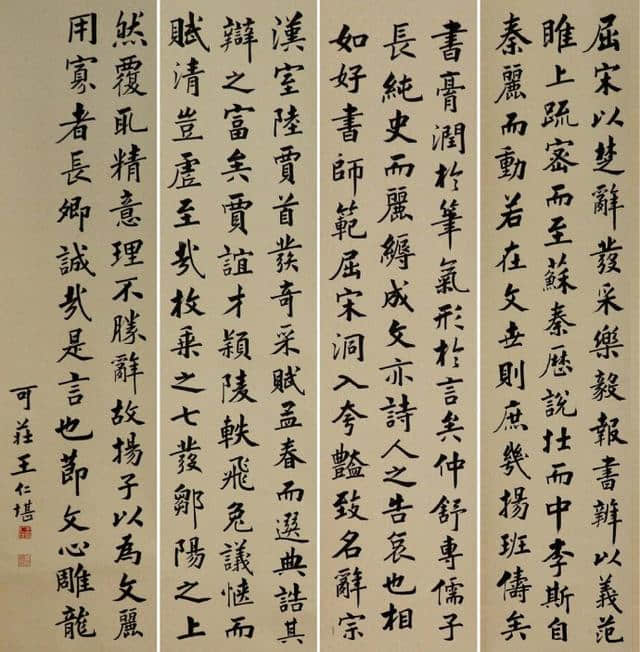 屈宋以楚辭發采樂毅報書辨以義范
雎上疏密而至蘇秦歷說壯而中李斯自
秦麗而動若在文世則庶幾揚班儔矣
書膏潤於筆氣形於言矣仲舒專儒子
長純史而麗縟成文亦詩人之告哀也相
如好書師範屈宋洞入夸豔致名辭宗
漢室陸賈首發奇采賦孟春而選典誥其
辯之富矣賈誼才穎陵軼飛兔議愜而
賦清豈虛至哉枚乘之七發鄒陽之上
然覆取精意理不勝辭故揚子以為文麗
用寡者長卿誠哉是言也節文心雕龍
可莊王仁堪